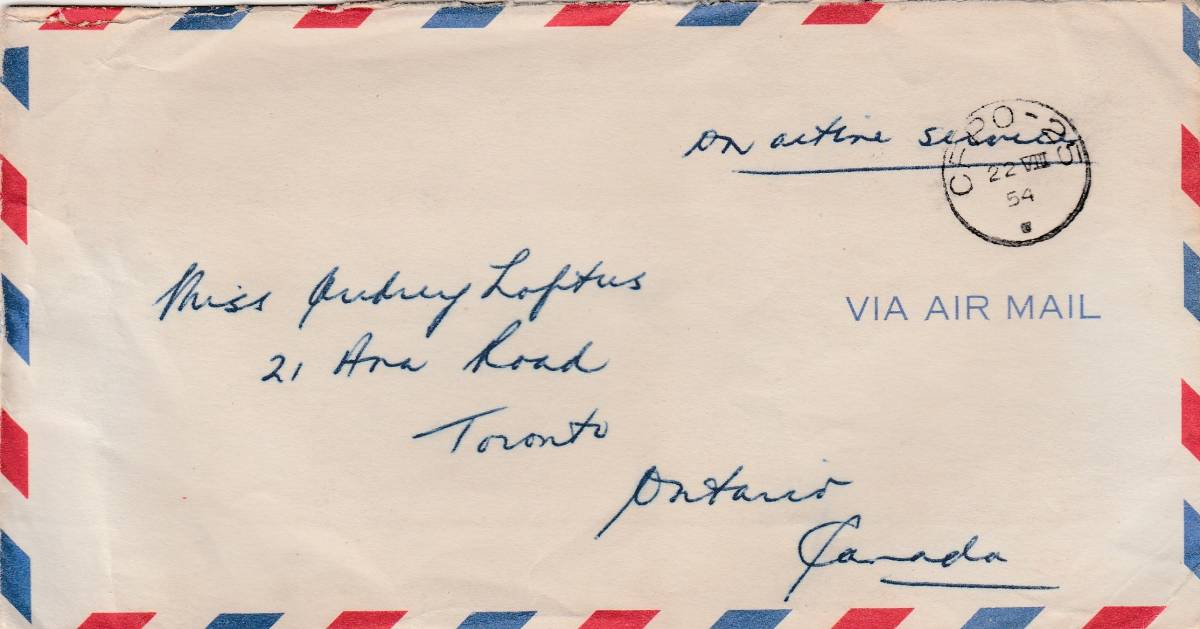 On active service
CFPO-25
22 VIII
54
VIA AIR MAIL
Miss Audrey Loftus
21 Ava Road
Toronto
Ontario
Canada